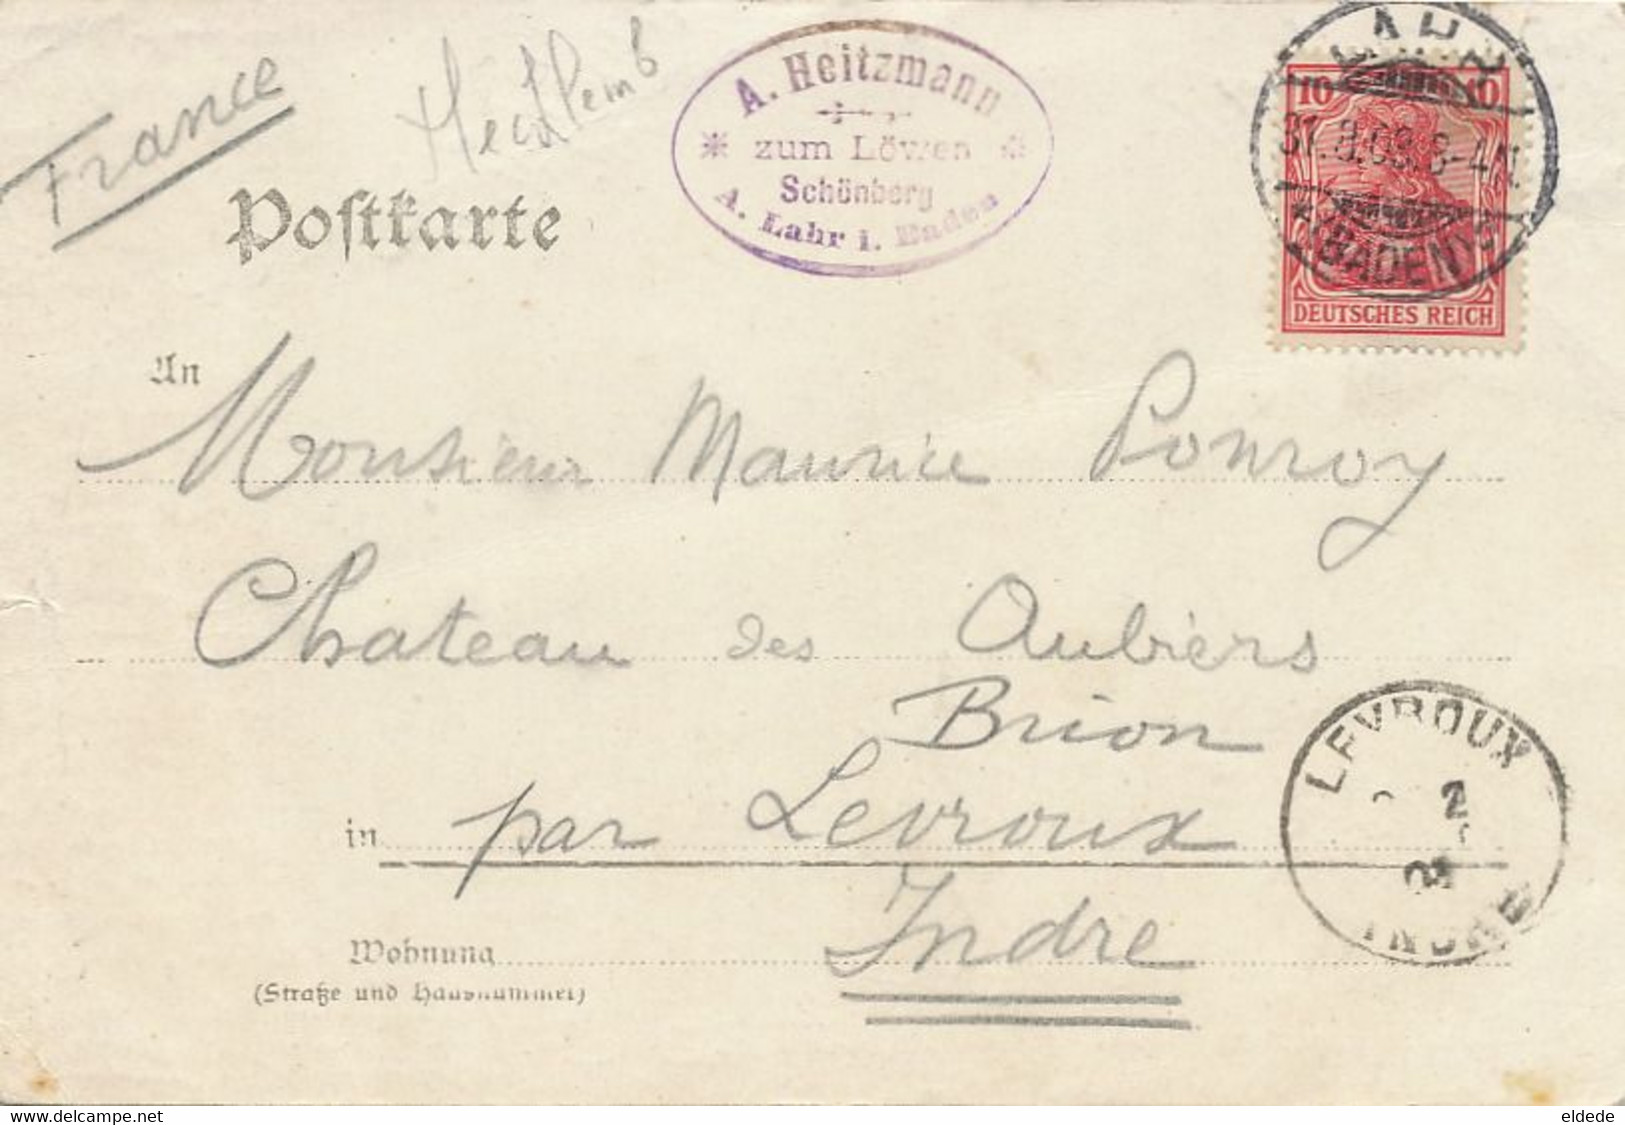 France
A. Heitzmann
zum Löwen
Schönberg
A. Lahr i. Baden
LAHR
* (BADEN)
10 10
DEUTSCHES REICH
Postkarte
An
Monsieur Maurice Ponroy
Chateau des Aubiers
Brion
in par Levroux
Indre
LEVROUX
2
INDRE
Wohnung
(Straße und Hausnummer)
www.delcampe.net
eldede